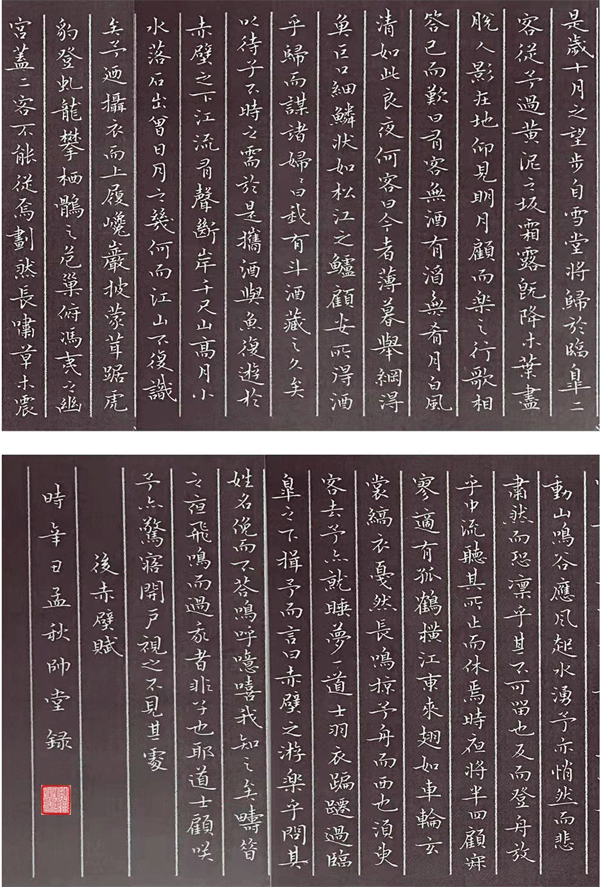 是歲十月之望步自雪堂將歸於臨臯二
客從予過黃泥之坂霜露既降木葉盡
脫人影在地仰見明月顧而樂之行歌相
答已而歎曰有客無酒有酒無肴月白風
清如此良夜何客曰今者薄暮舉網得
魚巨口細鱗狀如松江之鱸顧安所得酒
乎歸而謀諸婦曰我有斗酒藏之久矣
以待子不時之需於是攜酒與魚復遊於
赤壁之下江流有聲斷岸千尺山高月小
水落石出曾日月之幾何而江山不復識
矣予迺攝衣而上履巉巖披蒙茸踞虎
豹登虬龍攀栖鶻之危巢俯馮夷之幽
宮蓋二客不能從焉劃然長嘯草木震
動山鳴谷應風起水湧予亦悄然而悲
肅然而恐凜乎其不可留也反而登舟放
乎中流聽其所止而休焉時夜將半四顧寂
寥適有孤鶴橫江東來翅如車輪玄
裳縞衣戛然長鳴掠予舟而西也須臾
客去予亦就睡夢一道士羽衣蹁躚過臨
臯之下揖予而言曰赤壁之游樂乎問其
姓名俛而不答嗚呼噫嘻我知之矣疇昔
之夜飛鳴而過我者非子也耶道士顧咲
予亦驚寤開戶視之不見其處
後赤壁賦
時辛丑孟秋帥堂錄